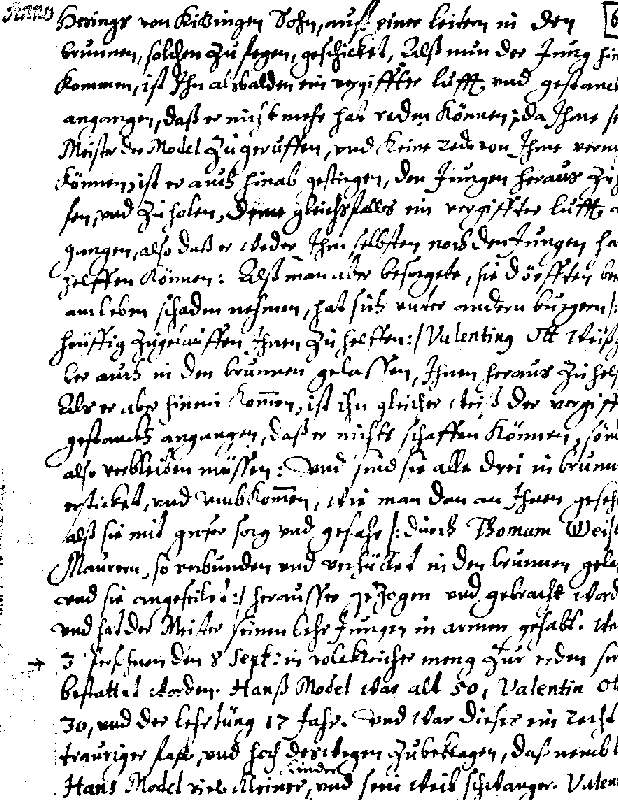 Anno
Herings von Kitzingen Sohn, auf einer leitern in den
brunnen, solchen zu fegen, geschicket, Alß nun der Jung hin
kommen, ist Ihn alsbalden ein vergiffter lufft und gestanck
angangen, daß er nicht mehr hat reden können, da Ihme se
Meister der Model zugeruffen, und keine rede von Ihme verne
können, ist er auch hinab gestiegen, den Jungen heraus zu
fen, und zu holen, deme gleichfalls ein vergiffter lufft a
gangen, also daß er weder Ihm selbsten noch den Jungen ha
helffen können: Alß man aber besorgete, sie dörfften
am leben schaden nehmen, hat sich unter andern burgern /:
häuffig zugelauffen Ihnen zu helffen:/ Valentinus Ott Weißg
ber auch in den brunnen gelassen, Ihnen heraus zu helf
Als er aber hinein kommen, ist ihn gleicher weiß der vergiff
gestanck angangen, daß er nichts schaffen können, sond
also verbleiben müssen: Und sind sie alle drei in brunn
ersticket, und umbkommen, wie man dan an Ihnen geseh
alß sie mit guter sorg und gefahr /: durch Thomam Weis
Maurern, so verbunden und verhücket in den brunnen gela
und sie angeseilet:/ herausser gezogen und gebracht word
und hat der Meister seinen lehr Jungen in armen gehabt.
3 Personen den 8 Sept: in volckreicher meng zur erden
bestattet worden. Hanß Model war alt 50, Valentin Ot
30, und der lehrJung 17 Jahr. Und war dieses ein recht
trauriger fall, und hoch deswegen zu beklagen, daß nembl
Kinder
Hans Model viel kleiner, und sein weib schwanger. Valen